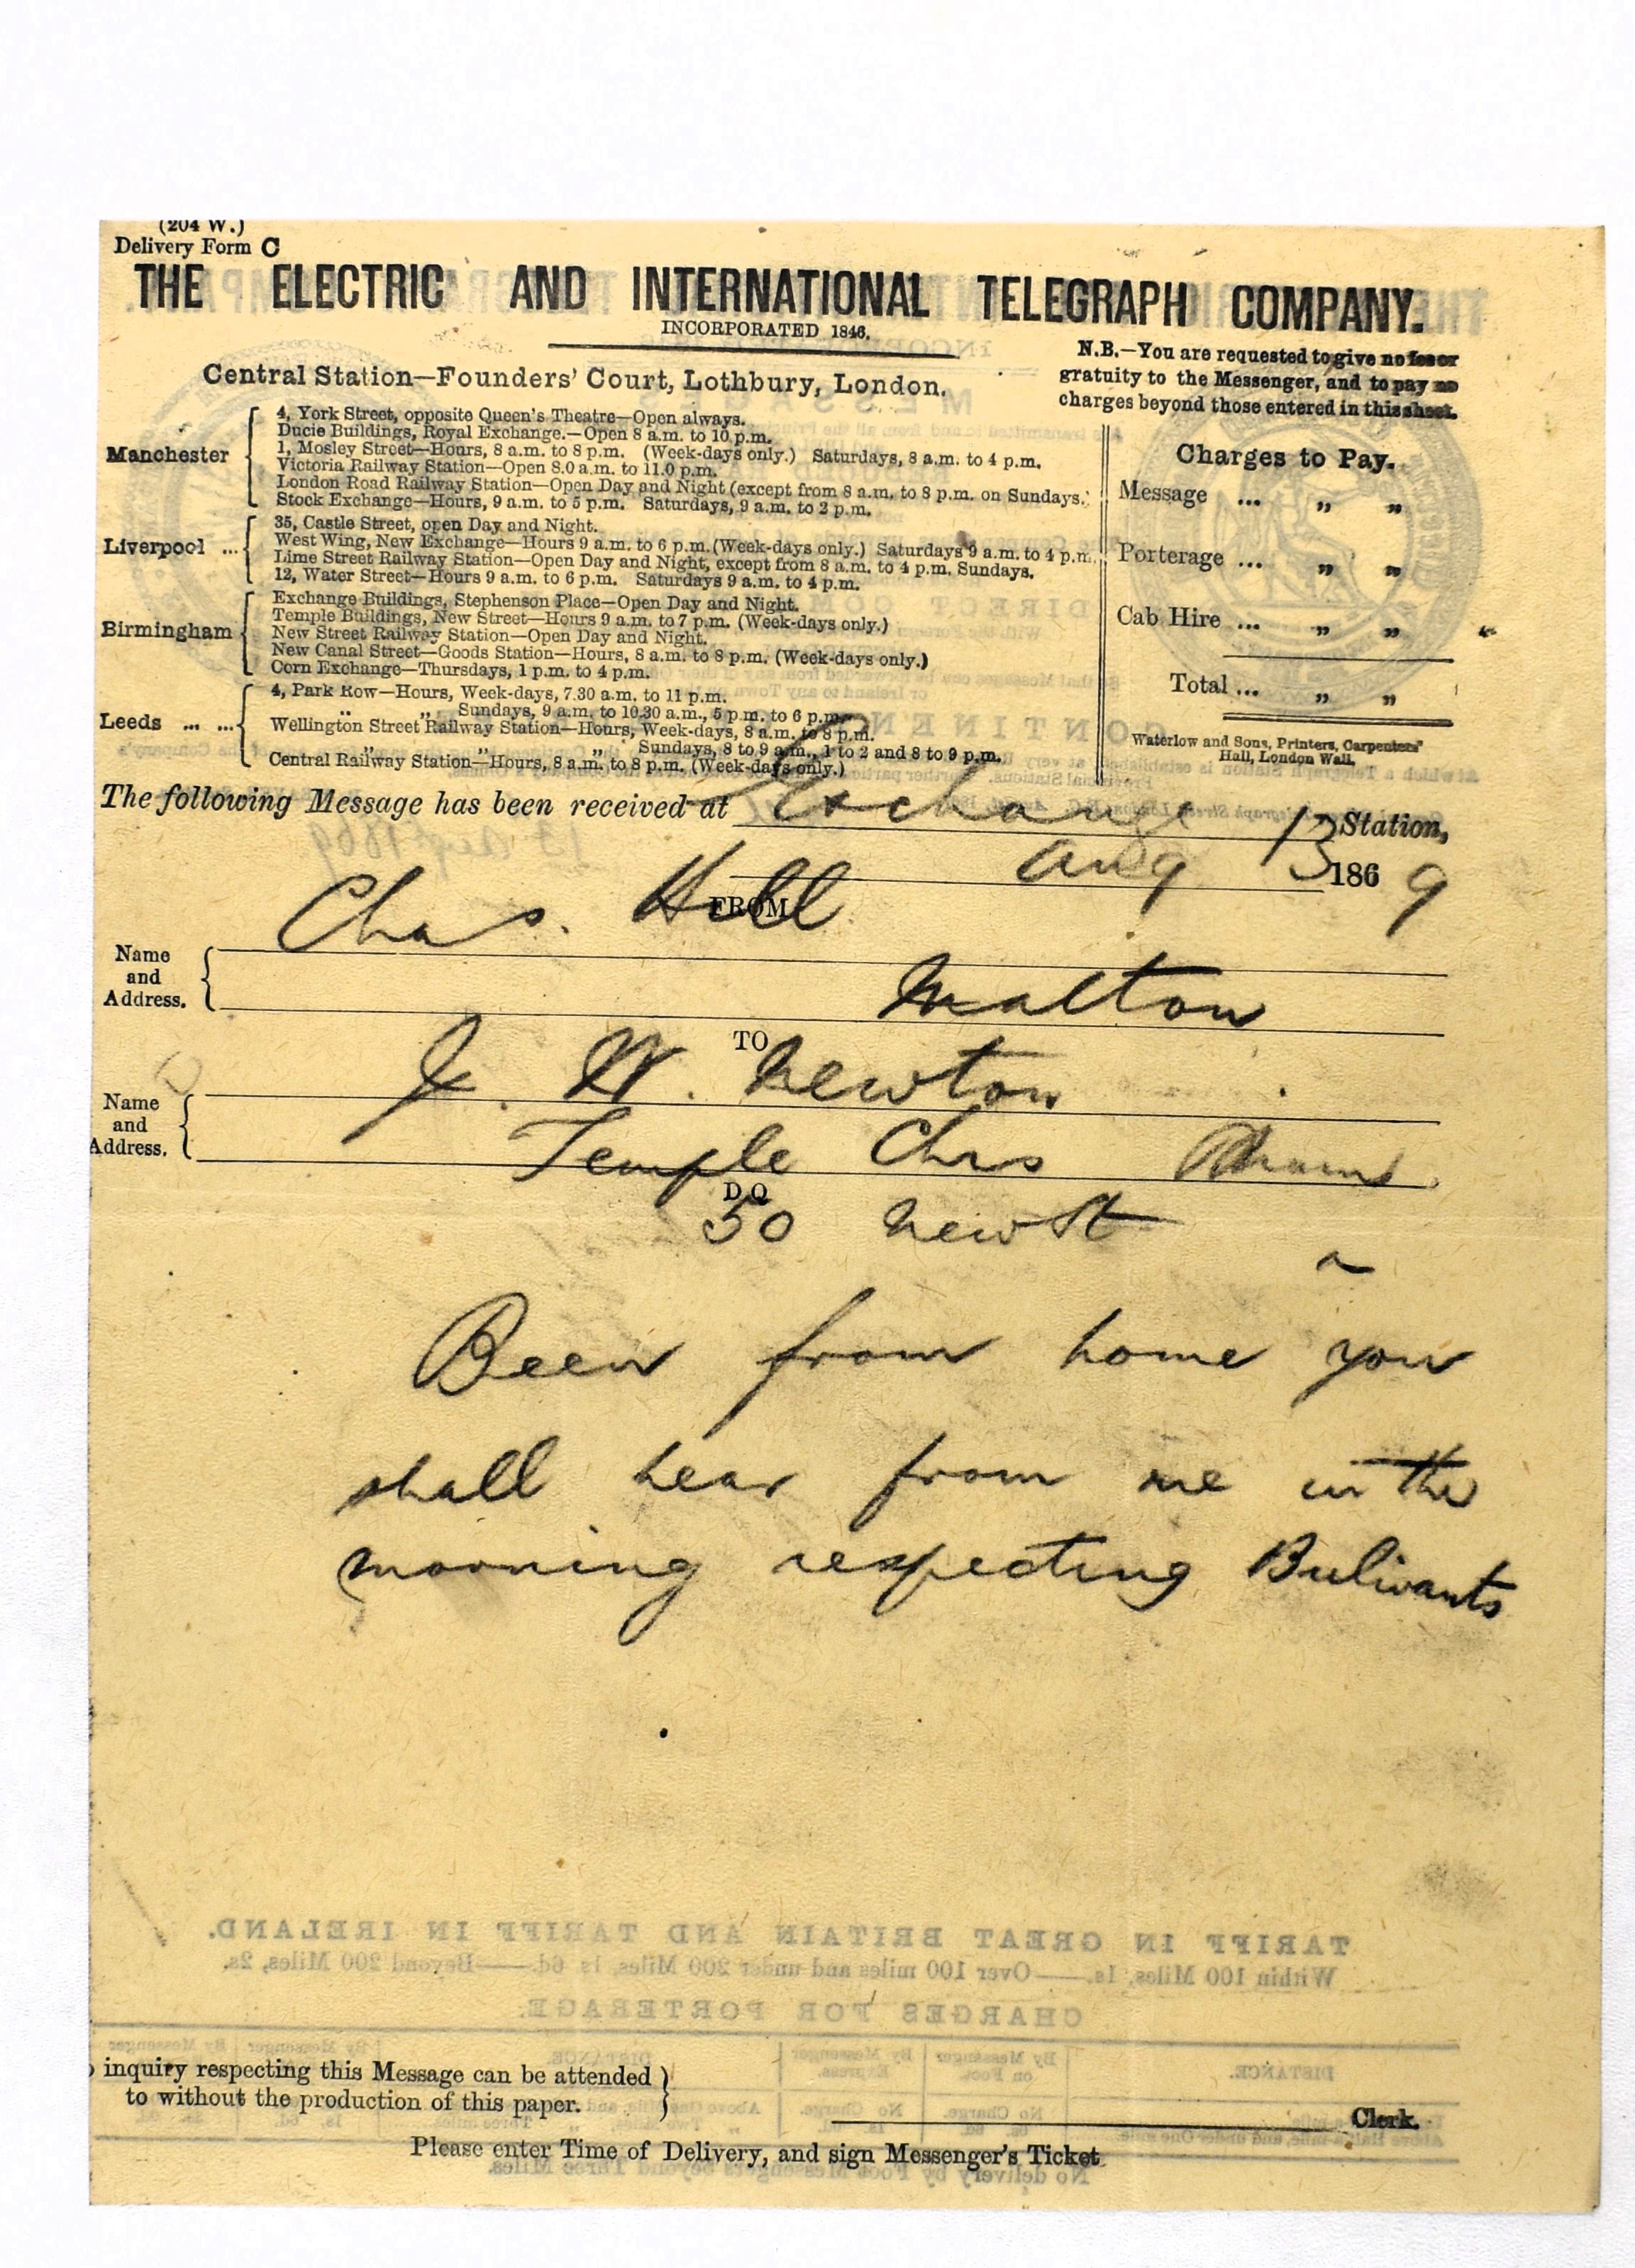 (204 W.)
Delivery Form C
THE ELECTRIC AND INTERNATIONAL TELEGRAPH COMPANY.
INCORPORATED 1846.
Central Station—Founders' Court, Lothbury, London.
N.B.—You are requested to give no fee or
gratuity to the Messenger, and to pay no
charges beyond those entered in this sheet.
Manchester
4, York Street, opposite Queen's Theatre—Open always.
Ducie Buildings, Royal Exchange.—Open 8 a.m. to 10 p.m.
1, Mosley Street—Hours, 8 a.m. to 8 p.m. (Week-days only.) Saturdays, 8 a.m. to 4 p.m.
Victoria Railway Station—Open 8.0 a.m. to 11.0 p.m.
London Road Railway Station—Open Day and Night (except from 8 a.m. to 8 p.m. on Sundays.)
Stock Exchange—Hours, 9 a.m. to 5 p.m. Saturdays, 9 a.m. to 2 p.m.
Liverpool ...
35, Castle Street, open Day and Night.
West Wing, New Exchange—Hours 9 a.m. to 6 p.m. (Week-days only.) Saturdays 9 a.m. to 4 p.m.
Lime Street Railway Station—Open Day and Night, except from 8 a.m. to 4 p.m. Sundays.
12, Water Street—Hours 9 a.m. to 6 p.m. Saturdays 9 a.m. to 4 p.m.
Birmingham
Exchange Buildings, Stephenson Place—Open Day and Night.
Temple Buildings, New Street—Hours 9 a.m. to 7 p.m. (Week-days only.)
New Street Railway Station—Open Day and Night.
New Canal Street—Goods Station—Hours, 8 a.m. to 8 p.m. (Week-days only.)
Corn Exchange—Thursdays, 1 p.m. to 4 p.m.
Leeds ... ...
4, Park Row—Hours, Week-days, 7.30 a.m. to 11 p.m.
" " Sundays, 9 a.m. to 10.30 a.m., 5 p.m. to 6 p.m.
Wellington Street Railway Station—Hours, Week-days, 8 a.m. to 8 p.m.
" " " Sundays, 8 to 9 a.m., 1 to 2 and 8 to 9 p.m.
Central Railway Station—Hours, 8 a.m. to 8 p.m. (Week-days only.)
Charges to Pay.
Message ... " "
Porterage ... " "
Cab Hire ... " "
Total ... " "
Waterlow and Sons, Printers, Carpenters'
Hall, London Wall.
The following Message has been received at Exchange Station,
Aug 13 1869
FROM
Chas. Hall
Name
and
Address.
Malton
TO
J. W. Newton
Name
and
Address.
Temple Chrs
D Q
50 New St
Been from home you
shall hear from me in the
morning respecting Bulivants
inquiry respecting this Message can be attended
to without the production of this paper.
Clerk.
Please enter Time of Delivery, and sign Messenger's Ticket